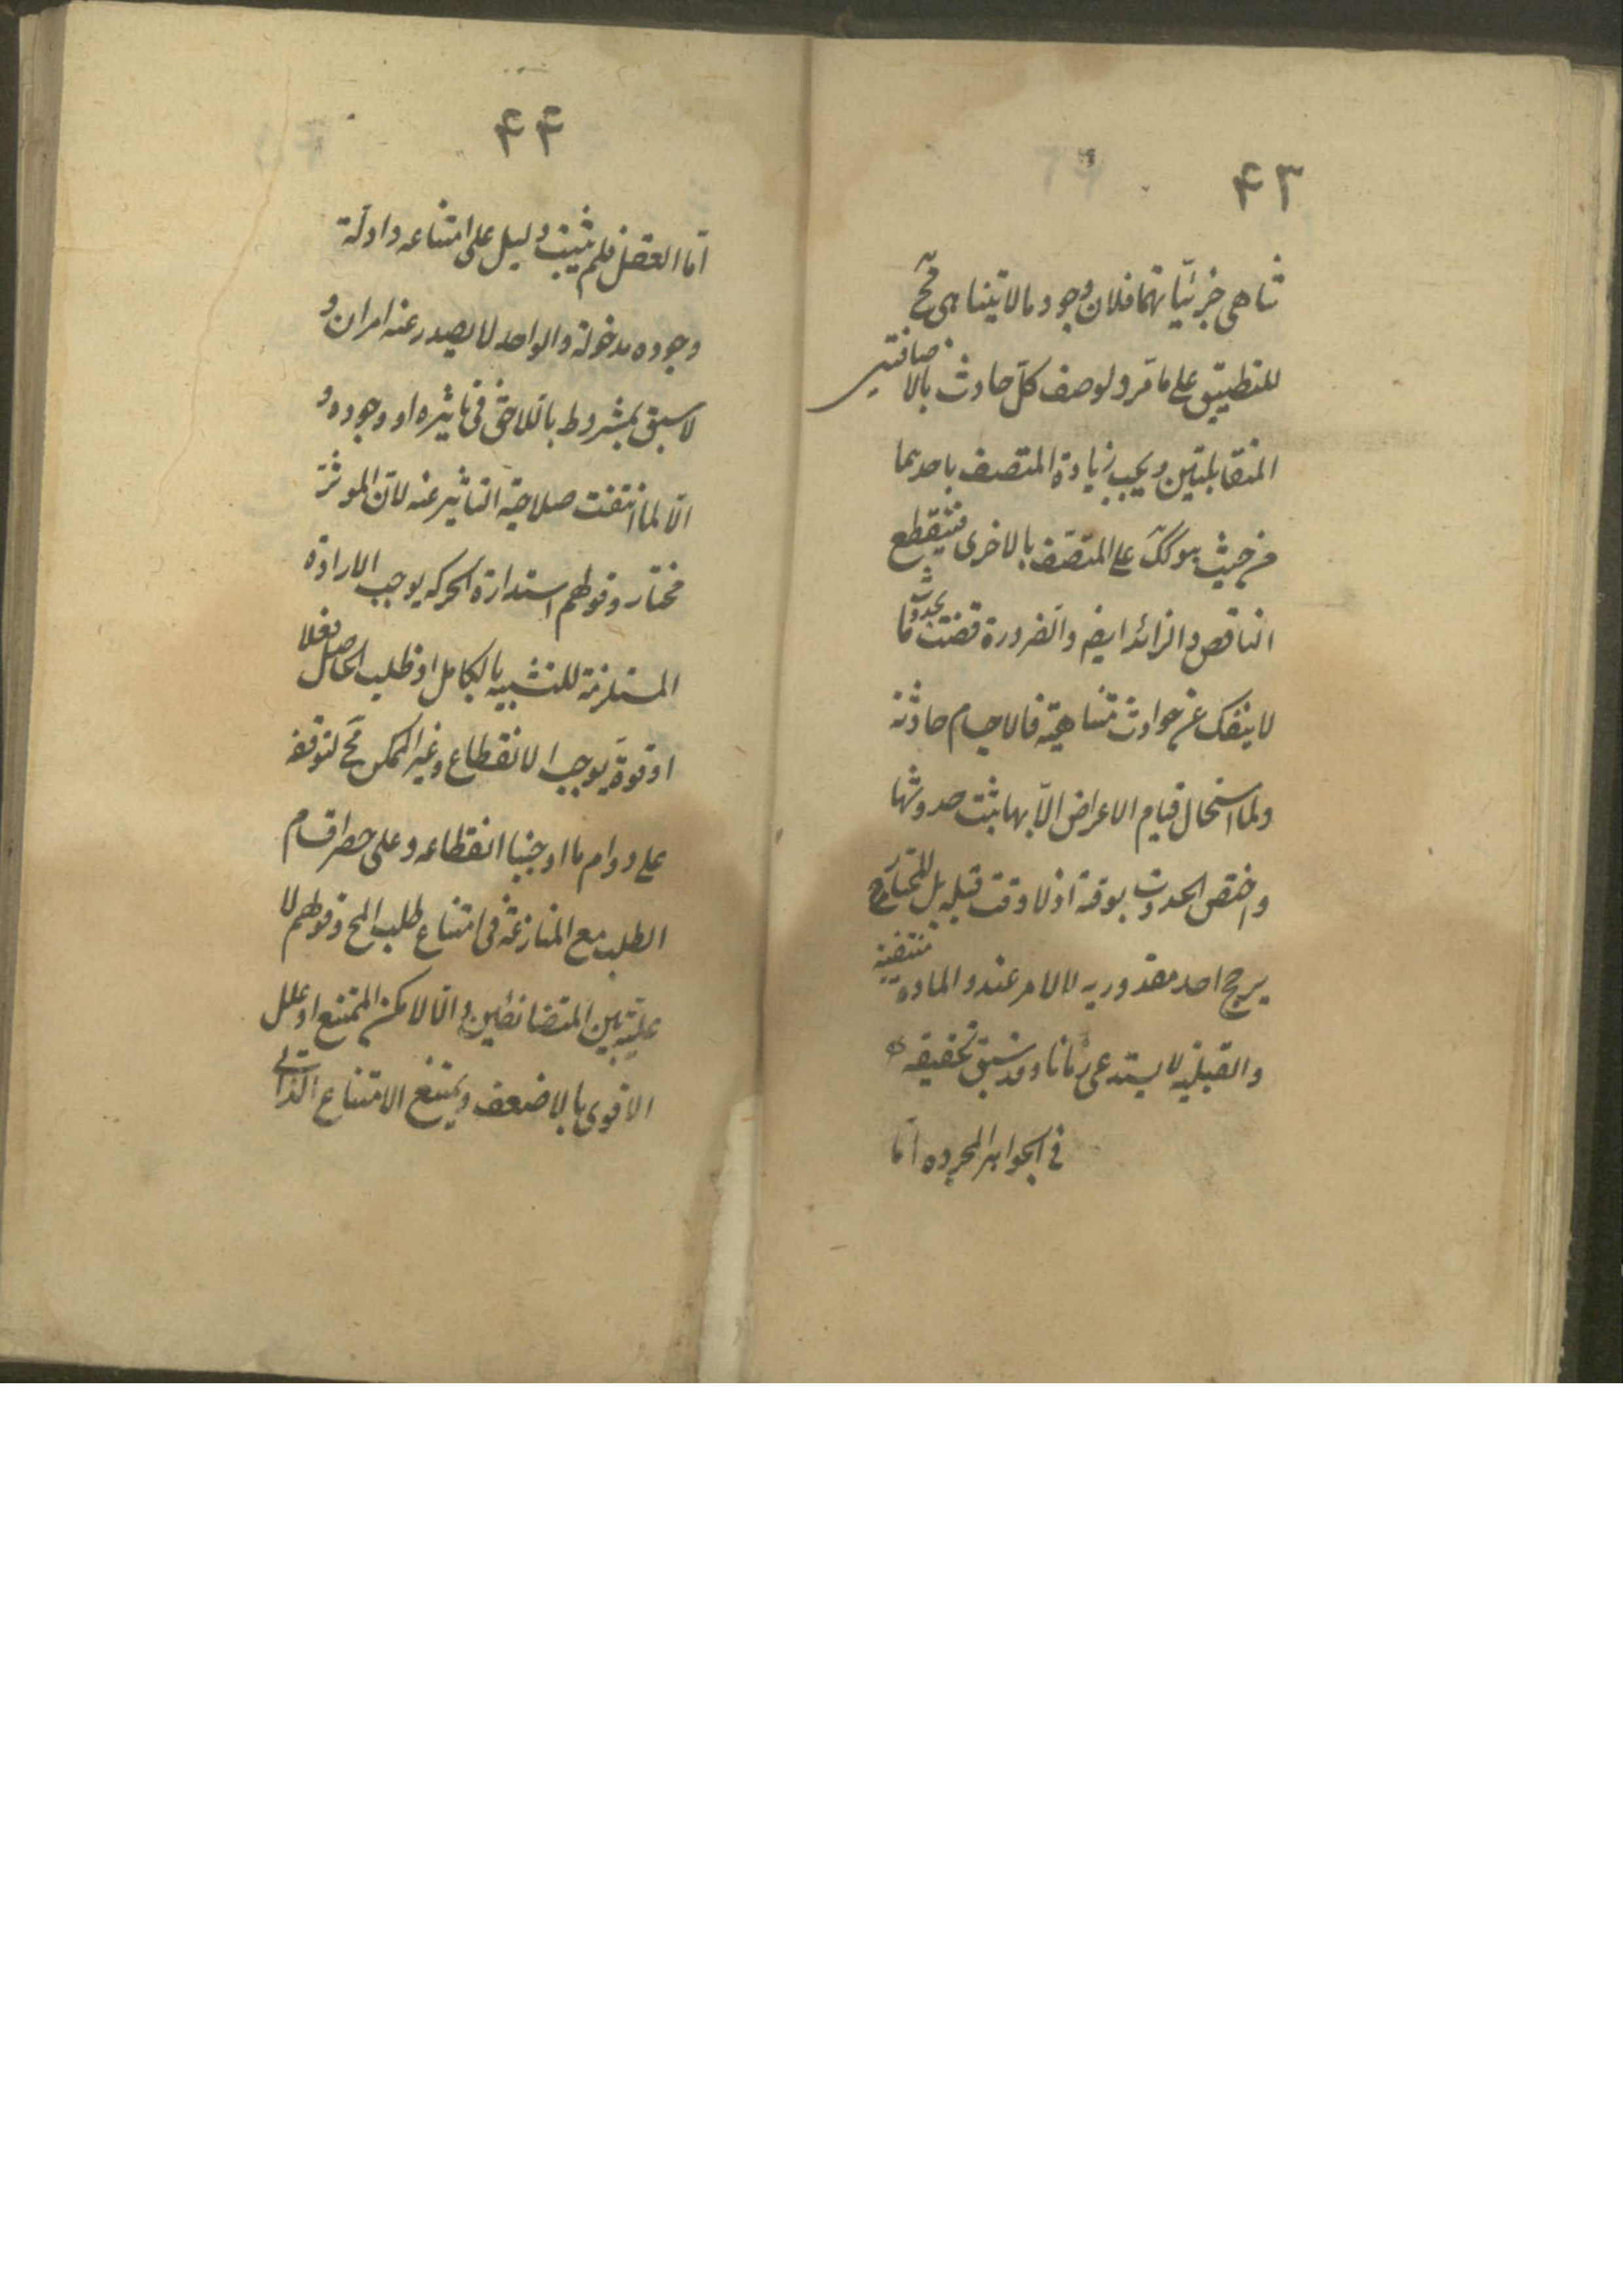 ۴۳
تناهی جزئیّاتهما فلان وجود مالا یتناهی مح
للتطبیق علی ما مرّ و لوصف کلّ حادث بالاضافتین
المتقابلتین و یجب زیادة المتصف باحدیهما
من حیث هو کک علی المتصف بالاخری فینقطع
الناقص و الزائد ایض و الضرورة قضت بحدوث ما
لا ینفک عن حوادث متناهیة فالاجسام حادثة
و لما استحال قیام الاعراض الّا بها ثبت حدوثها
و اختص الحدوث بوقته اذ لا وقت قبله بل المختار
یرجح احد مقدوریه لا لامر عند و الماده منتفیه
و القبلیه لا یستدعی زمانا و قد سبق تحقیقه
فی الجواهر المجرده امّا
۴۴
امّا العقل فلم یثبت دلیل علی امتناعه و ادلّة
وجوده مدخولة و الواحد لا یصدر عنه امران و
لا سبق لمشروط باللاحق فی تاثیره او وجوده و
الّا لما انتفت صلاحیة التاثیر عنه لانّ الموثر
مختار و قولهم استدارة الحرکه یوجب الارادة
المستلزمة للتشبیه بالکامل اذ طلب الحاصل فعلا
او قوة یوجب الانقطاع و غیر الممکن مح لتوقفه
علی دوام ما اوجبنا انقطاعه و علی حصر اقسام
الطلب مع المنازعة فی امتناع طلب المح و قولهم لا
علیّة بین المتضائفین و الّا لامکن الممتنع او علل
الاقوی بالاضعف و یمتنع الامتناع الذاتی